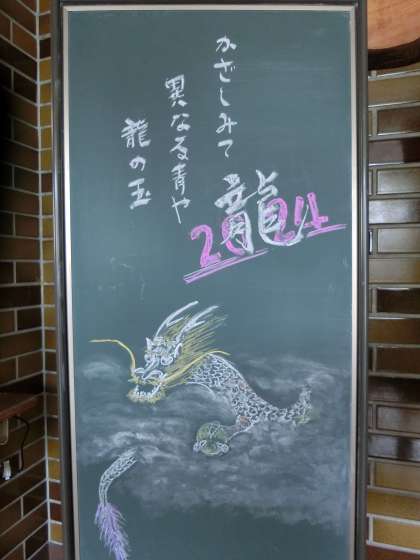 かざしみて
異なる青や
龍の玉
龍
2024